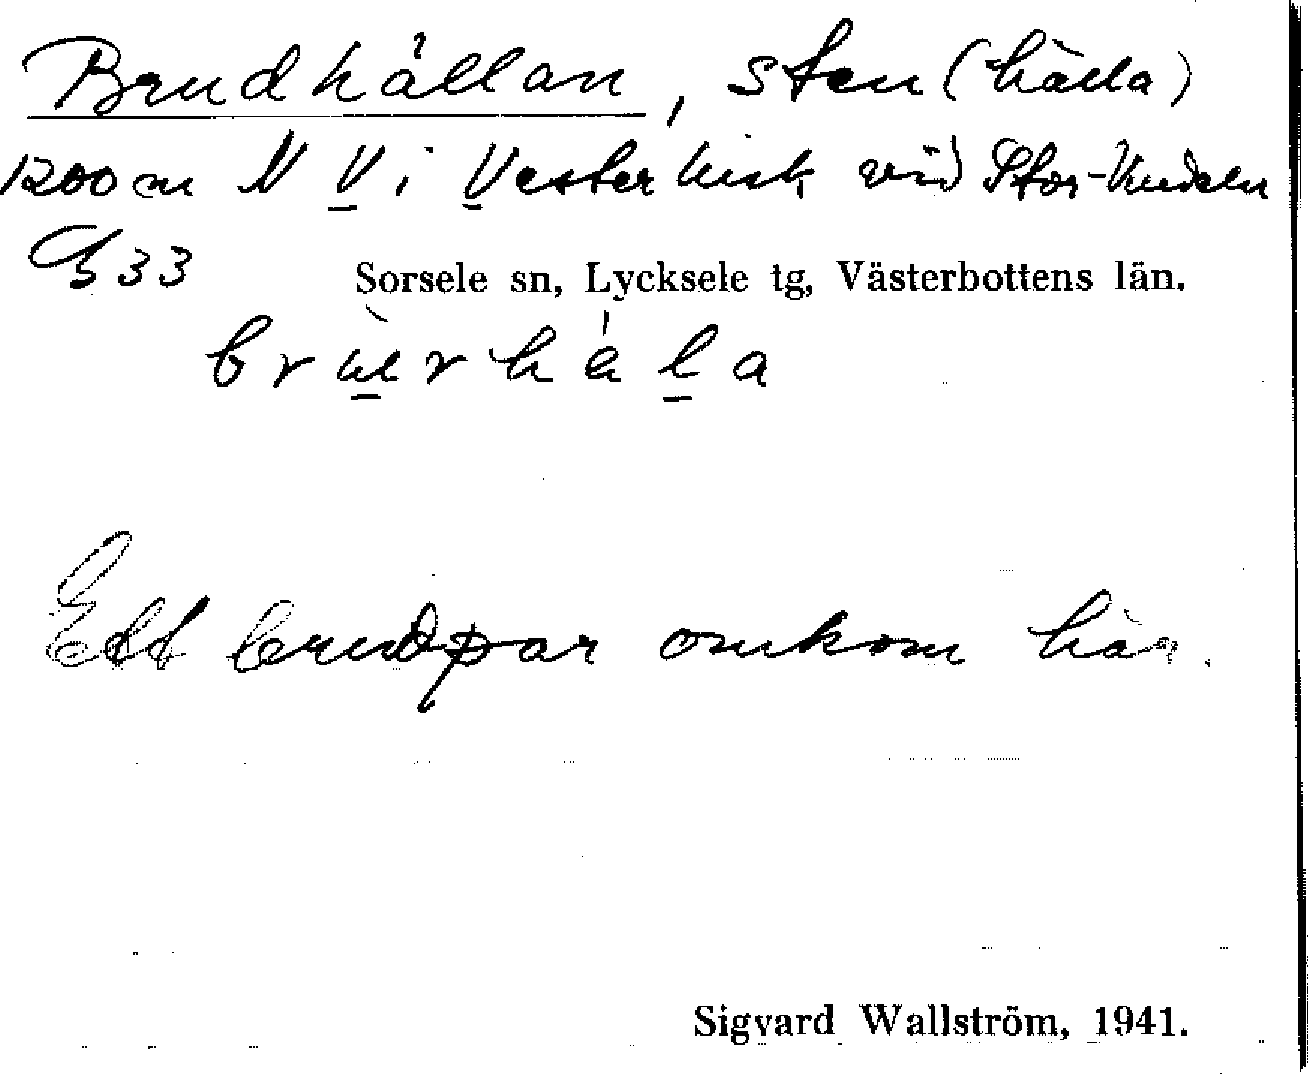 Brudhällan, sten (hälla)
1200 m N V i Vester vid Stor-Vindeln
G 33
Sorsele sn, Lycksele tg, Västerbottens län.
Ett brudpar omkom här.
Sigvard Wallström, 1941.